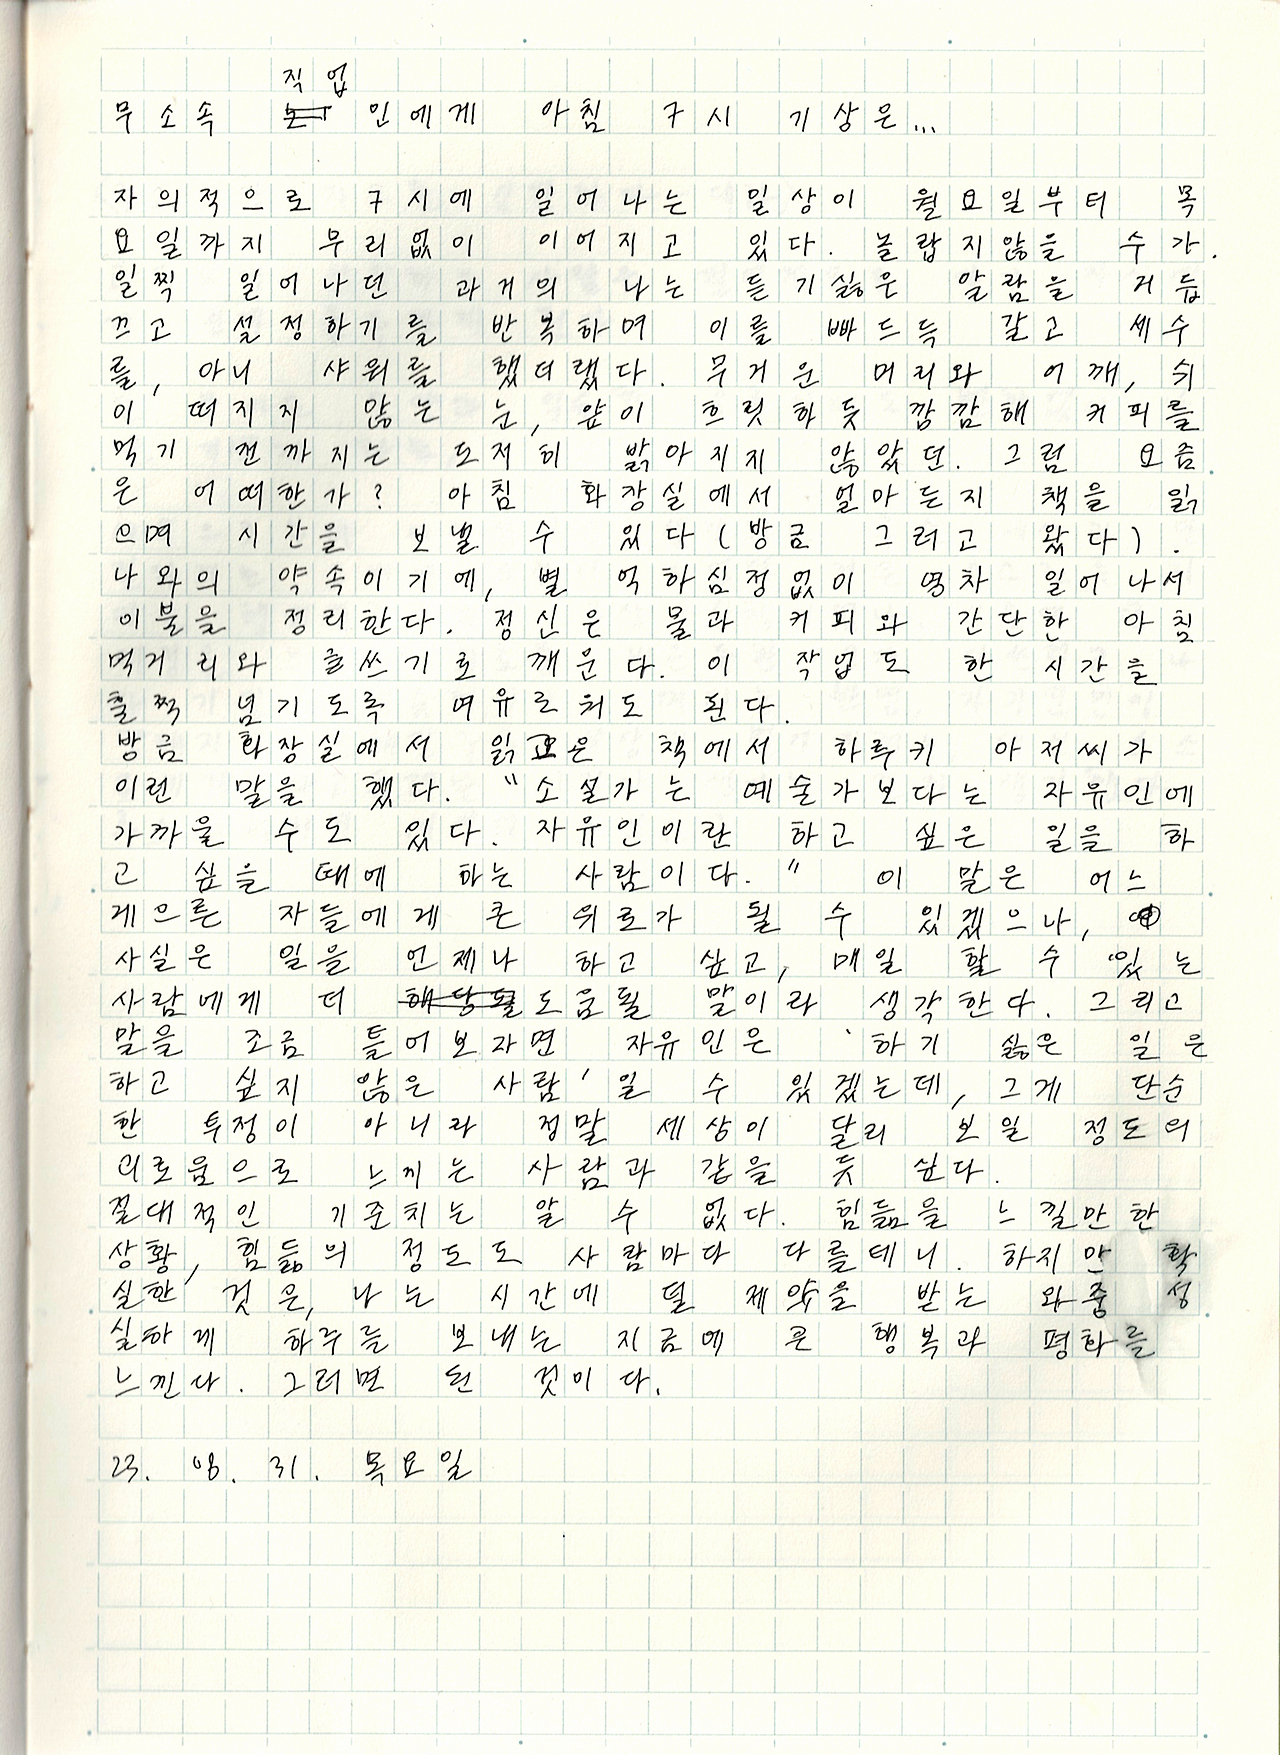 직업
무소속 인에게 아침 7시 기상은...
자의적으로 7시에 일어나는 일상이 월요일부터 목
요일까지 무리없이 이어지고 있다. 놀랍지않을 수가.
일찍 일어나던 과거의 나는 듣기싫은 알람을 거듭
끄고 설정하기를 반복하며 이를 빠드득 갈고 세수
를, 아니 샤워를 했더랬다. 무거운 머리와 어깨, 쉬
이 떠지지 않는 눈, 앞이 흐릿하듯 깜깜해 커피를
먹기 전까지는 도저히 밝아지지 않았던. 그럼 요즘
은 어떠한가? 아침 화장실에서 얼마든지 책을 읽
으며 시간을 보낼 수 있다(방금 그러고 왔다).
나와의 약속이기에, 별 억하심정없이 영차 일어나서
이불을 정리한다. 정신은 물과 커피와 간단한 아침
먹거리와 글쓰기로 깨운다. 이 작업도 한 시간을
훌쩍 넘기도록 여유로워도 된다.
방금 화장실에서 읽은 책에서 하루키 아저씨가
이런 말을 했다. "소설가는 예술가보다는 자유인에
가까울 수도 있다. 자유인이란 하고 싶은 일을 하
고 싶을 때에 하는 사람이다." 이 말은 어느
게으른 자들에게 큰 위로가 될 수 있겠으나,
사실은 일을 언제나 하고 싶고, 매일 할 수 있는
사람에게 더 도움될 말이라 생각한다. 그리고
말을 조금 틀어보자면 자유인은 '하기 싫은 일은
하고 싶지 않은 사람'일 수 있겠는데, 그게 단순
한 투정이 아니라 정말 세상이 달리 보일 정도의
괴로움으로 느끼는 사람과 같을 듯 싶다.
절대적인 기준치는 알 수 없다. 힘듦을 느낄만한
상황, 힘듦의 정도도 사람마다 다를테니. 하지만 확
실한 것은, 나는 시간에 덜 제약을 받는 와중 성
실하게 하루를 보내는 지금에 큰 행복과 평화를
느낀다. 그러면 된 것이다.
23. 08. 31. 목요일